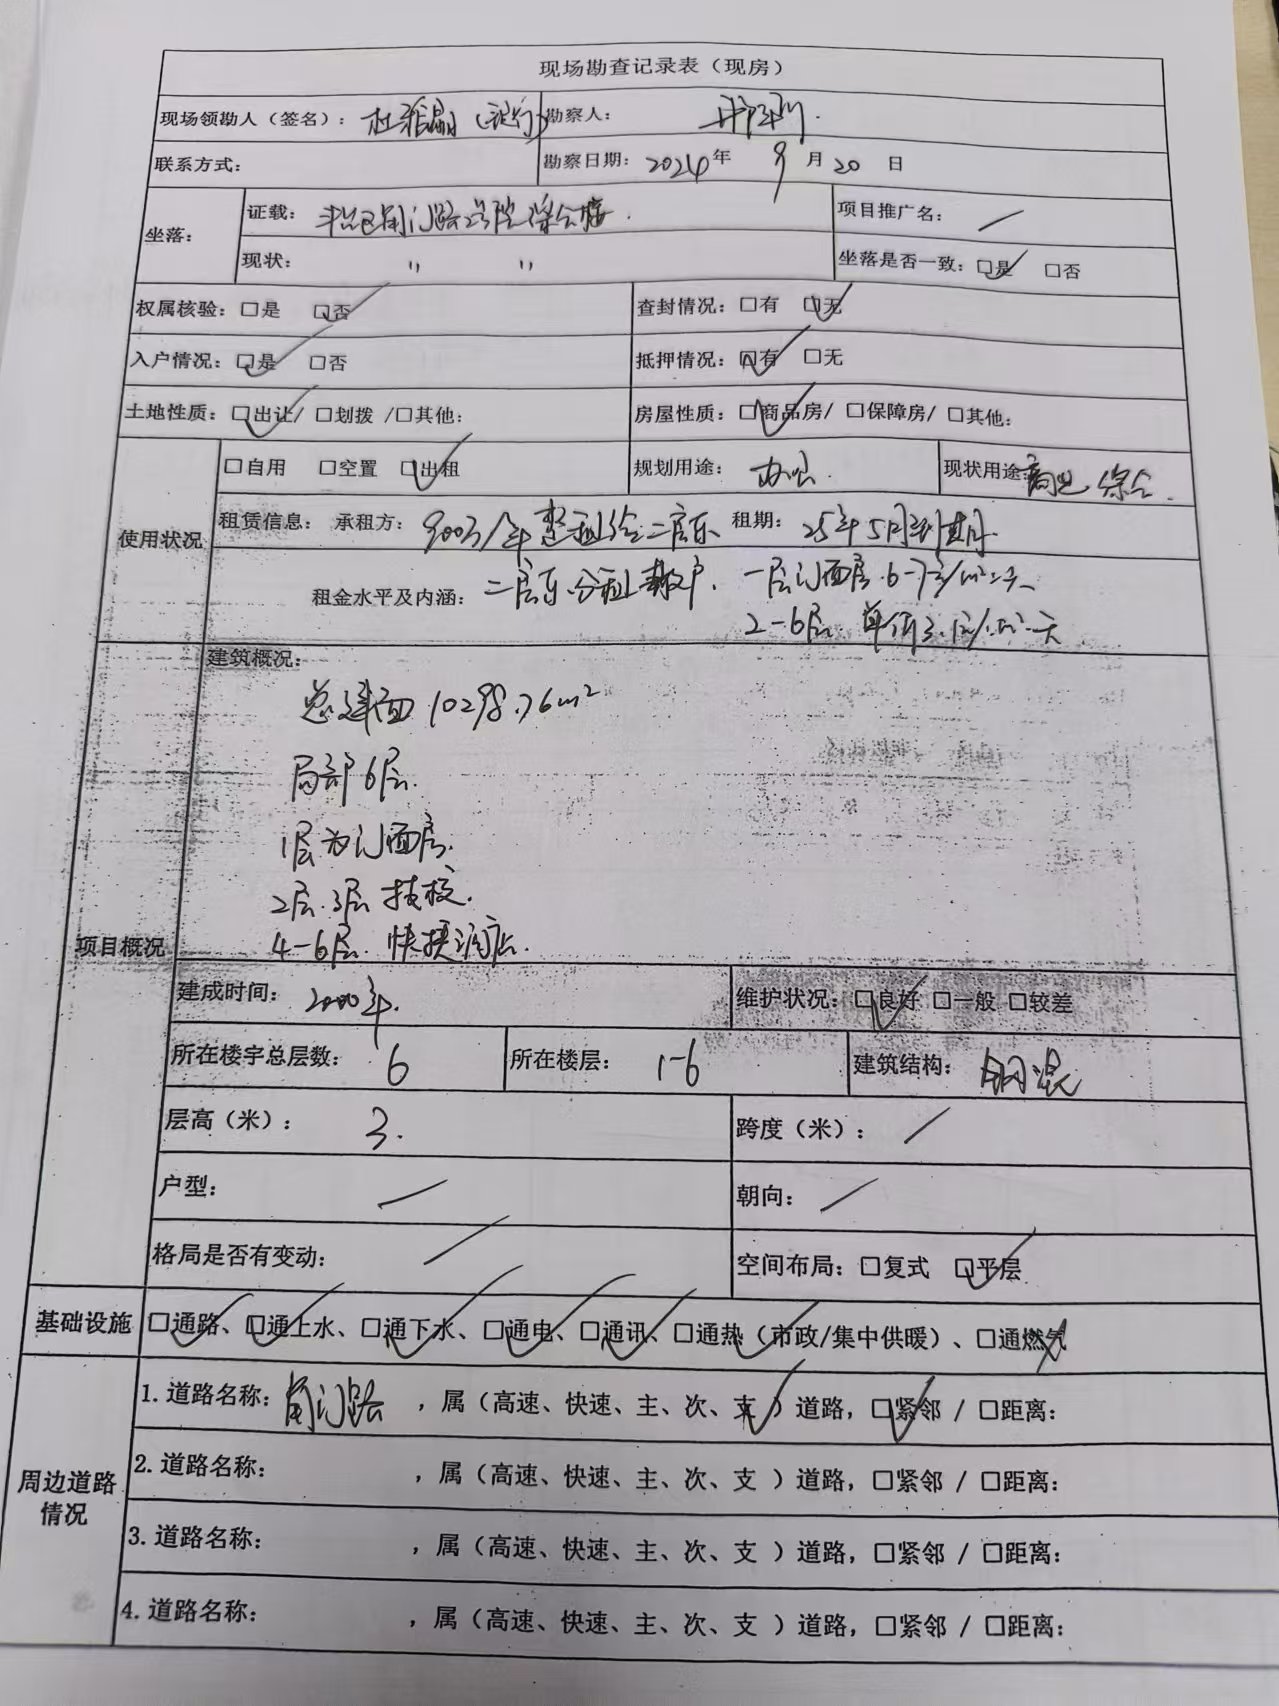 现场勘查记录表（现房）
现场领勘人（签名）： 杜 （银行） 勘察人：
联系方式： 勘察日期： 2024 年 9 月 20 日
坐落： 证载： 丰台区角门路 号院综合楼. 项目推广名： /
现状： 〃 〃 坐落是否一致：☑是 □否
权属核验：□是 ☑否 查封情况：□有 ☑无
入户情况：☑是 □否 抵押情况：☑有 □无
土地性质：☑出让/ □划拨 /□其他： 房屋性质：☑商品房/ □保障房/ □其他：
使用状况 □自用 □空置 ☑出租 规划用途： 办公. 现状用途： 商业 综合.
租赁信息： 承租方： 900万/年 整租给二房东 租期： 25年5月到期.
租金水平及内涵： 二房东分租 散户. 一层门面房.6-7元/m².天
2-6层. 单价3. 元/m².天
项目概况 建筑概况：
总建面 10298.76m²
局部6层.
1层为门面房.
2层.3层 技校.
4-6层. 快捷酒店.
建成时间： 2000年. 维护状况：☑良好 □一般 □较差
所在楼宇总层数： 6 所在楼层： 1-6 建筑结构： 钢混
层高（米）： 3. 跨度（米）： /
户型： / 朝向： /
格局是否有变动： / 空间布局：□复式 ☑平层
基础设施 ☑通路、☑通上水、☑通下水、☑通电、☑通讯、☑通热（市政/集中供暖）、□通燃气
周边道路情况 1. 道路名称： 角门路 ，属（高速、快速、主、次、支✓）道路，☑紧邻 / □距离：
2. 道路名称： ，属（高速、快速、主、次、支 ）道路，□紧邻 / □距离：
3. 道路名称： ，属（高速、快速、主、次、支 ）道路，□紧邻 / □距离：
4. 道路名称： ，属（高速、快速、主、次、支 ）道路，□紧邻 / □距离：